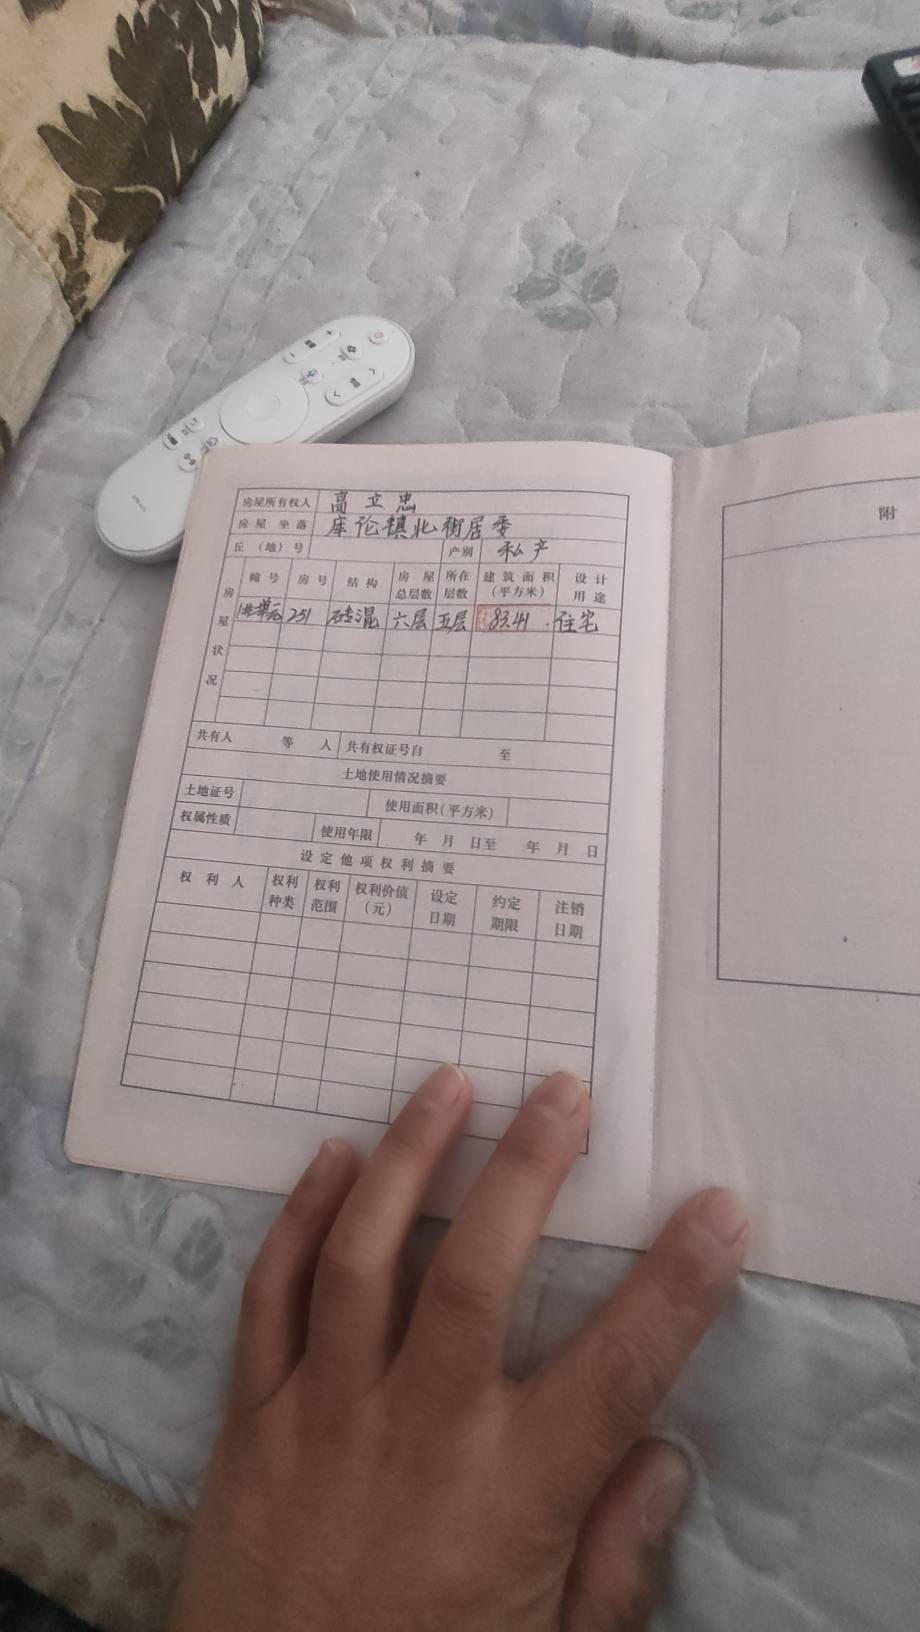 房屋所有权人 高立忠
房屋坐落 库论镇北街居委
丘（地）号 产别 私产
房屋状况
幢号 房号 结构 房屋总层数 所在层数 建筑面积（平方米） 设计用途
251 砖混 六层 五层 83.41 住宅
共有人 等 人 共有权证号自 至
土地使用情况摘要
土地证号 使用面积（平方米）
权属性质 使用年限 年 月 日至 年 月 日
设定他项权利摘要
权利人 权利种类 权利范围 权利价值（元） 设定日期 约定期限 注销日期
附